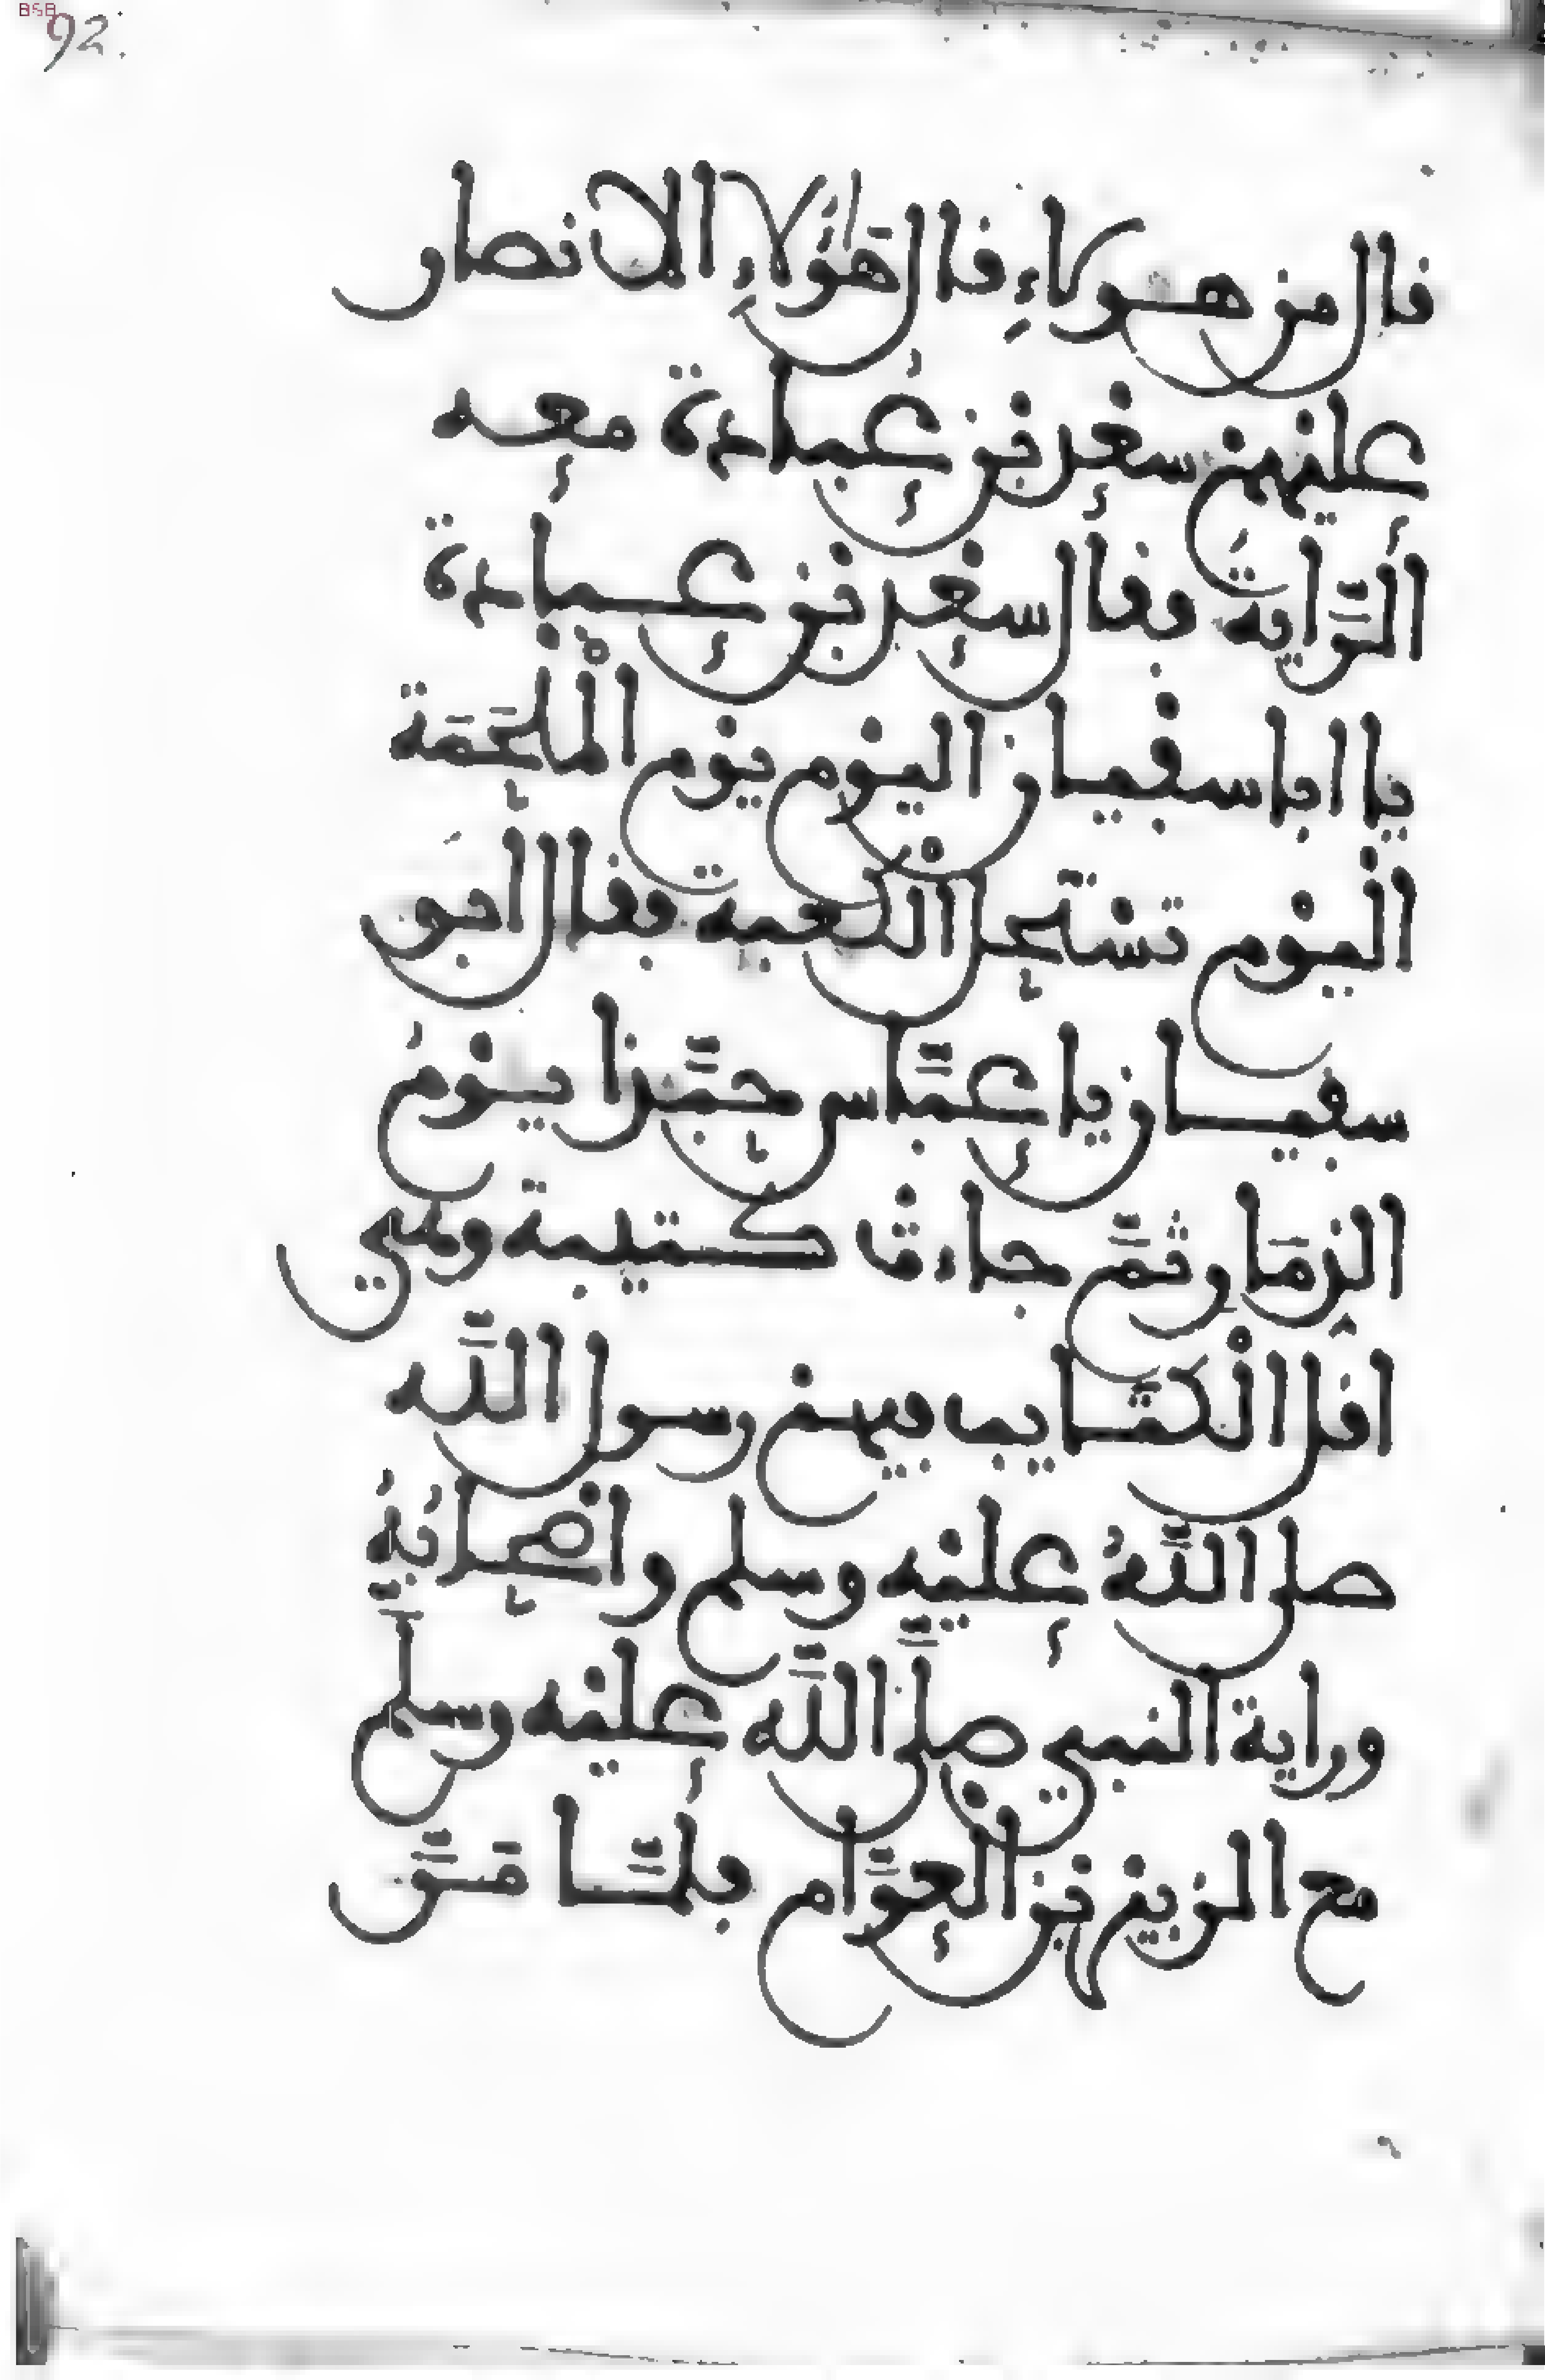 92.
قال من هؤلاءِ قال هَٰؤُلَاءِ الانصار
عليهمْ سعْد بْن عبادة معه
الرَّايَةُ فقال سعْد بْن عبادة
يا ابا سفْيان اليوْم يوْم الْملْحَمَة
الْيوْم تسْتحل الْكعبة فقال ابو
سفيان يا عبَّاس حبَّذا يوْمُ
الذِّمَار ثُمَّ جاءتْ كتيبة وهي
اقل الْكتَّايب فيهمْ رسول اللَّه
صلى اللَّهُ عليْه وسلم واصْحابُهُ
وراية النبي صلَّى اللَّه عليْه وسلَّم
مع الزبيْر بْن الْعوَّام فلمَّا مَرَّ